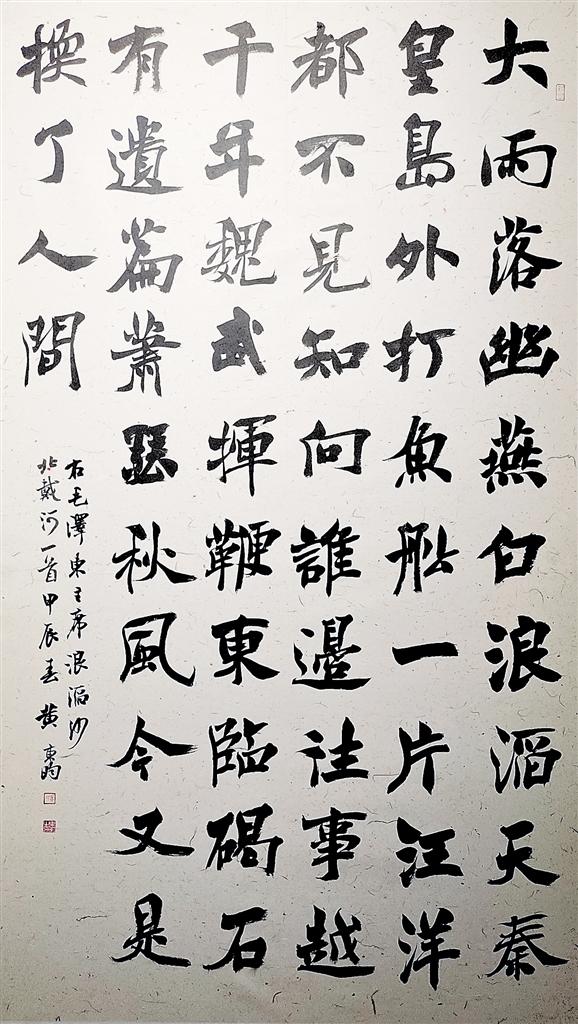 大雨落幽燕白浪滔天秦
皇島外打魚船一片汪洋
都不見知向誰邊往事越
千年魏武揮鞭東臨碣石
有遺篇蕭瑟秋風今又是
換了人間
右毛澤東主席浪滔沙
北戴河一首甲辰春黄